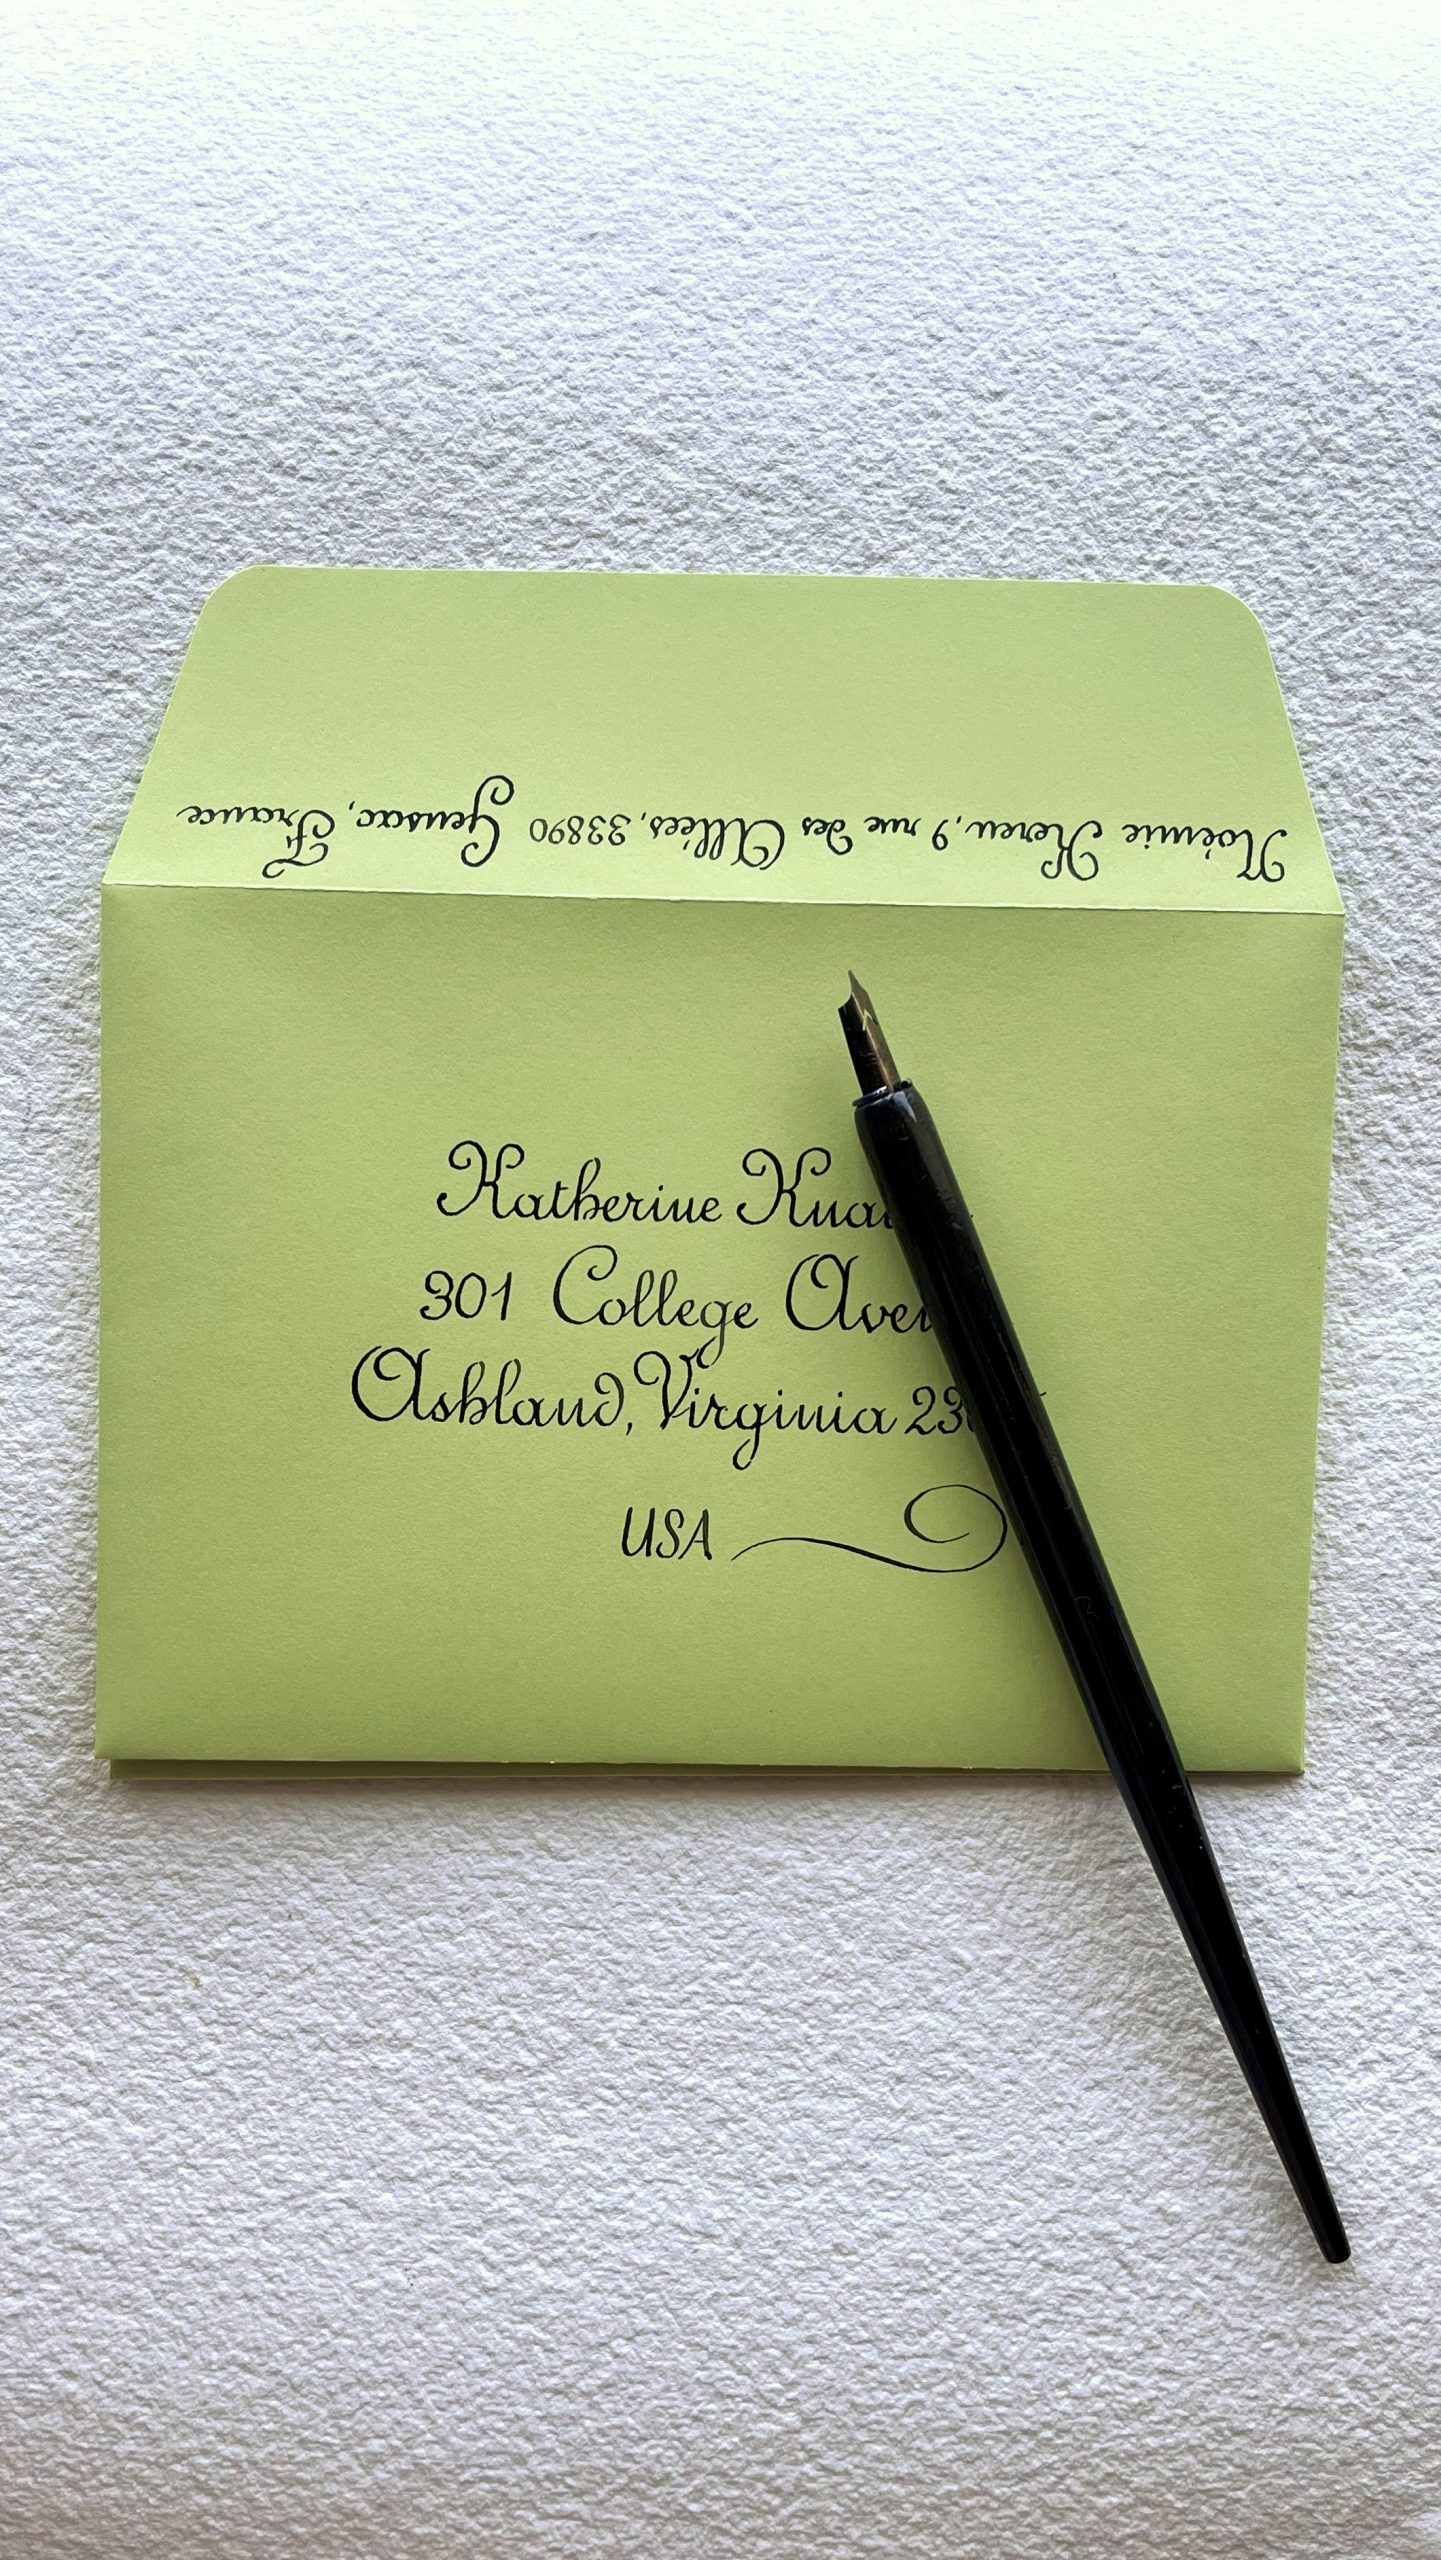 Noèmie Keren, 9 rue des Allées, 33890 Gensac, France
Katherine
301 College
Ashland, Virginia
USA